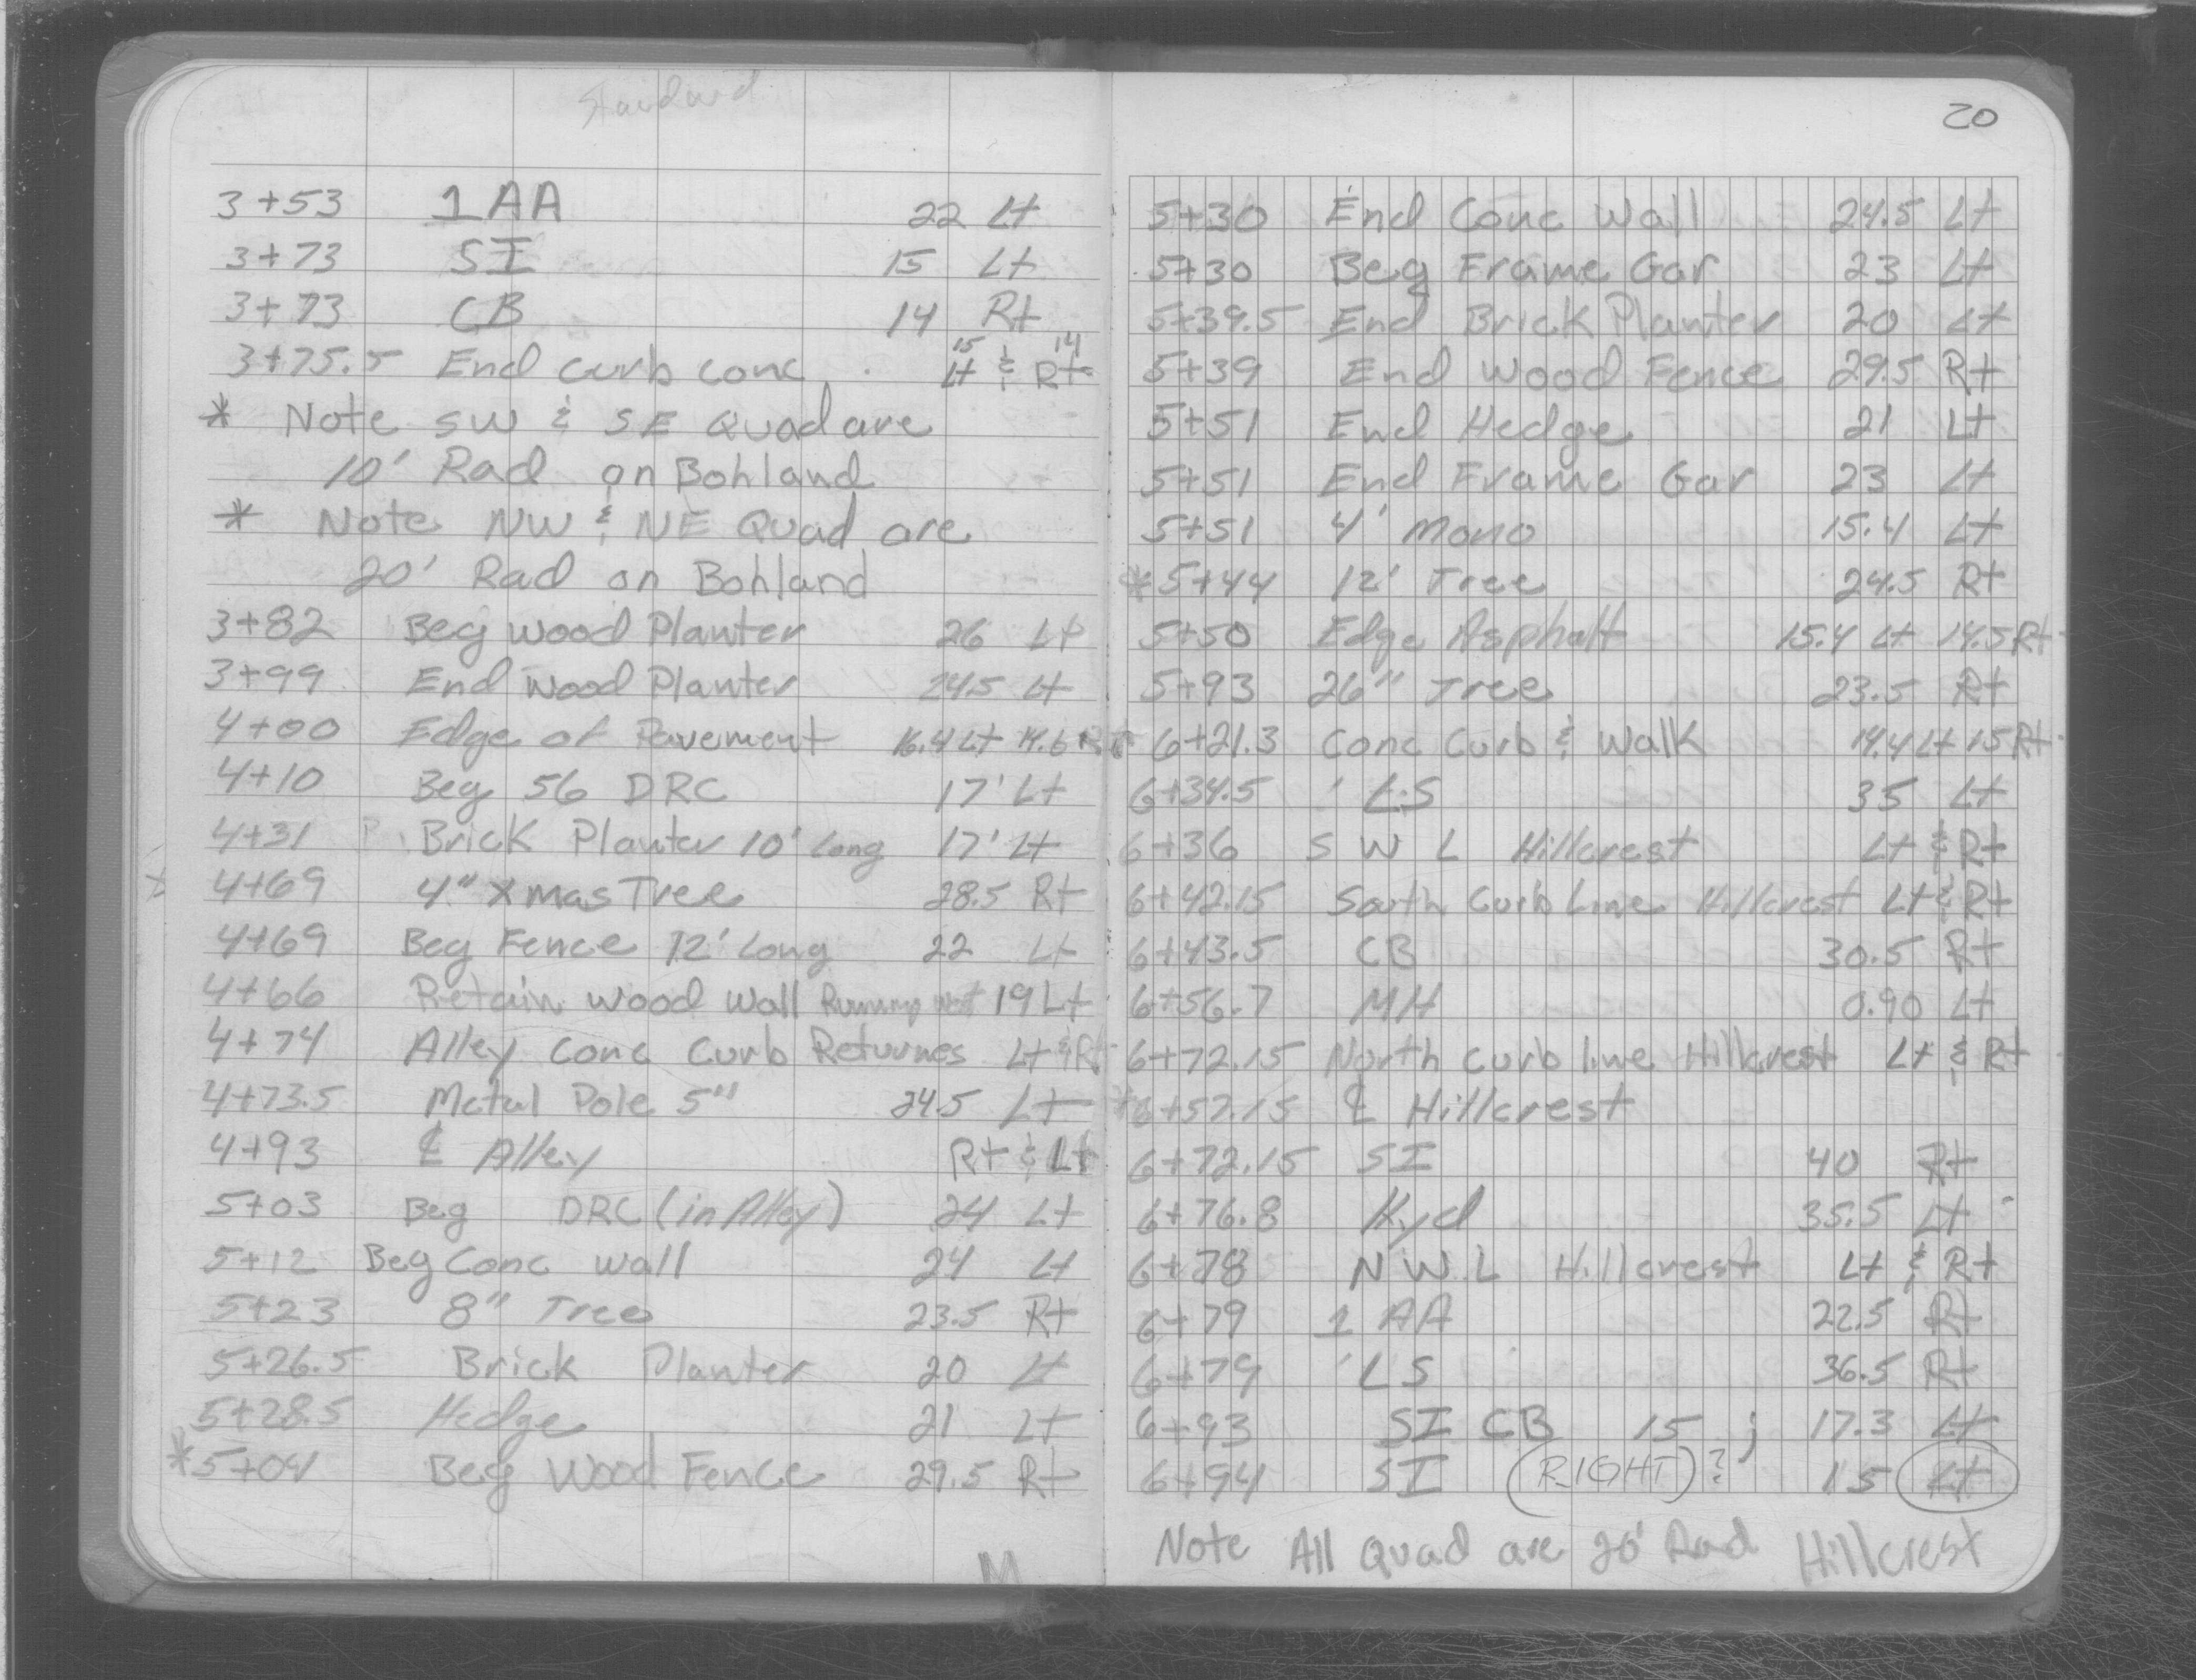 Standard
3+53 1AA 22 Lt
3+73 SI 15 Lt
3+73 CB 14 Rt
3+75.5 End Curb Conc 15 Lt & 14 Rt
* Note SW & SE Quad are
10' Rad on Bohland
* Note NW & NE Quad are
20' Rad on Bohland
3+82 Beg Wood Planter 26 Lt
3+99 End Wood Planter 24.5 Lt
4+00 Edge of Pavement 16.4 Lt 14.6 Rt
4+10 Beg 56 DRC 17' Lt
4+31 Brick Planter 10' Long 17' Lt
4+69 4" Xmas Tree 28.5 Rt
4+69 Beg Fence 12' Long 22 Lt
4+66 Retain Wood Wall Running 19 Lt
4+74 Alley Conc Curb Returnes Lt & Rt
4+73.5 Metal Pole 5" 24.5 Lt
4+93 ℄ Alley Rt & Lt
5+03 Beg DRC (in Alley) 24 Lt
5+12 Beg Conc Wall 24 Lt
5+23 8" Tree 23.5 Rt
5+26.5 Brick Planter 20 Lt
5+28.5 Hedge 21 Lt
*5+04 Beg Wood Fence 29.5 Rt
20
5+30 End Conc Wall 24.5 Lt
5+30 Beg Frame Gar 23 Lt
5+39.5 End Brick Planter 20 Lt
5+39 End Wood Fence 29.5 Rt
5+51 End Hedge 21 Lt
5+51 End Frame Gar 23 Lt
5+51 4' Mono 15.4 Lt
*5+44 12' Tree 24.5 Rt
5+50 Edge Asphalt 15.4 Lt 14.5 Rt
5+93 26" Tree 23.5 Rt
6+21.3 Conc Curb & Walk 14.4 Lt 15 Rt
6+34.5 LS 35 Lt
6+36 S W L Hillcrest Lt & Rt
6+42.15 South Curb Line Hillcrest Lt & Rt
6+43.5 CB 30.5 Rt
6+56.7 MH 0.90 Lt
6+72.15 North curb line Hillcrest Lt & Rt
*6+57.15 ℄ Hillcrest
6+72.15 SI 40 Rt
6+76.8 Hyd 35.5 Lt
6+78 N W L Hillcrest Lt & Rt
6+79 1 AA 22.5 Rt
6+79 LS 36.5 Rt
6+93 SI CB 15 ; 17.3 Lt
6+94 SI (RIGHT)? 15 Lt
Note All Quad are 20' Rad Hillcrest
M